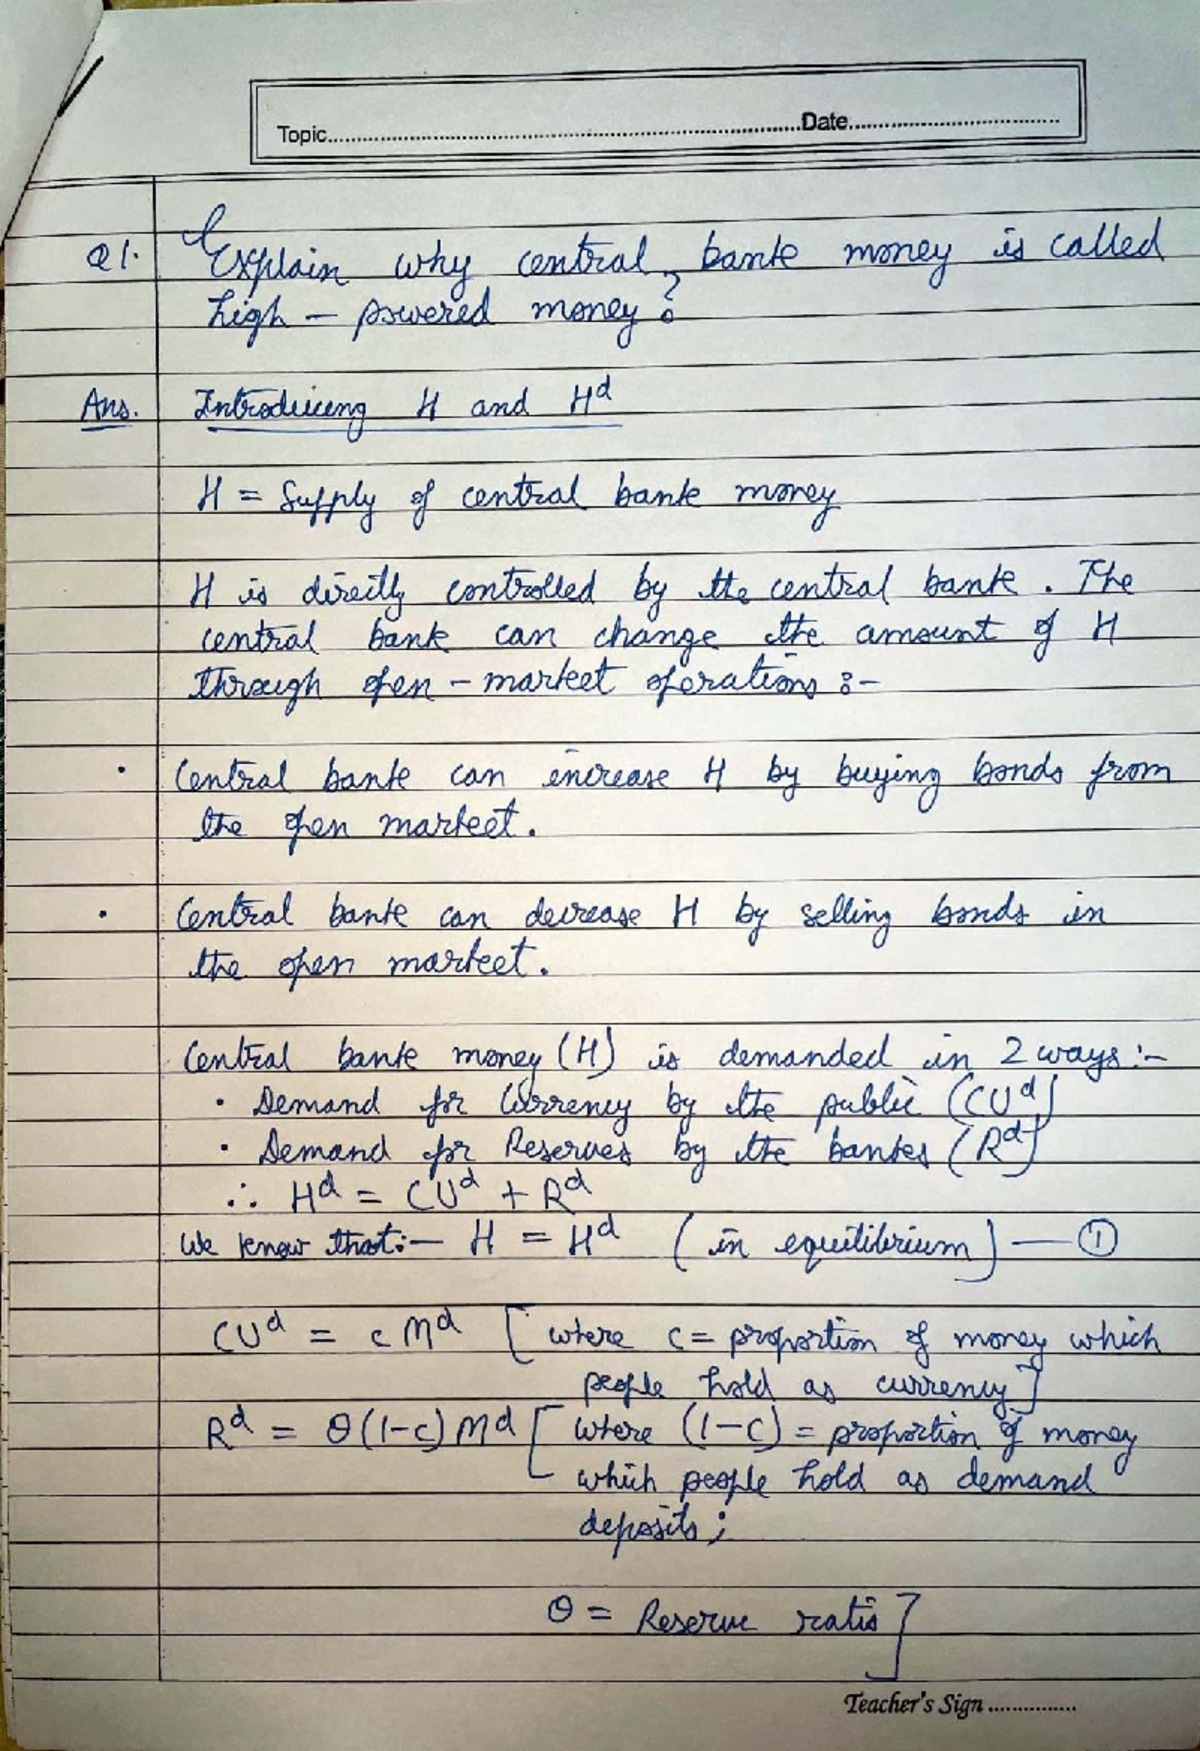 Topic..........Date..........
Q1. Explain why central bank money is called
high - powered money?
Ans. Introducing H and Hᵈ
H = Supply of central bank money
H is directly controlled by the central bank. The
central bank can change the amount of H
through open - market operations :-
• Central bank can increase H by buying bonds from
the open market.
• Central bank can decrease H by selling bonds in
the open market.
Central bank money (H) is demanded in 2 ways :-
• Demand for Currency by the public (CUᵈ)
• Demand for Reserves by the banks (Rᵈ)
∴ Hᵈ = CUᵈ + Rᵈ
We know that :- H = Hᵈ (in equilibrium) — ①
CUᵈ = c Mᵈ [where c = proportion of money which
people hold as currency]
Rᵈ = θ(1-c) Mᵈ [where (1-c) = proportion of money
which people hold as demand
deposits ;
θ = Reserve ratio]
Teacher's Sign ...............